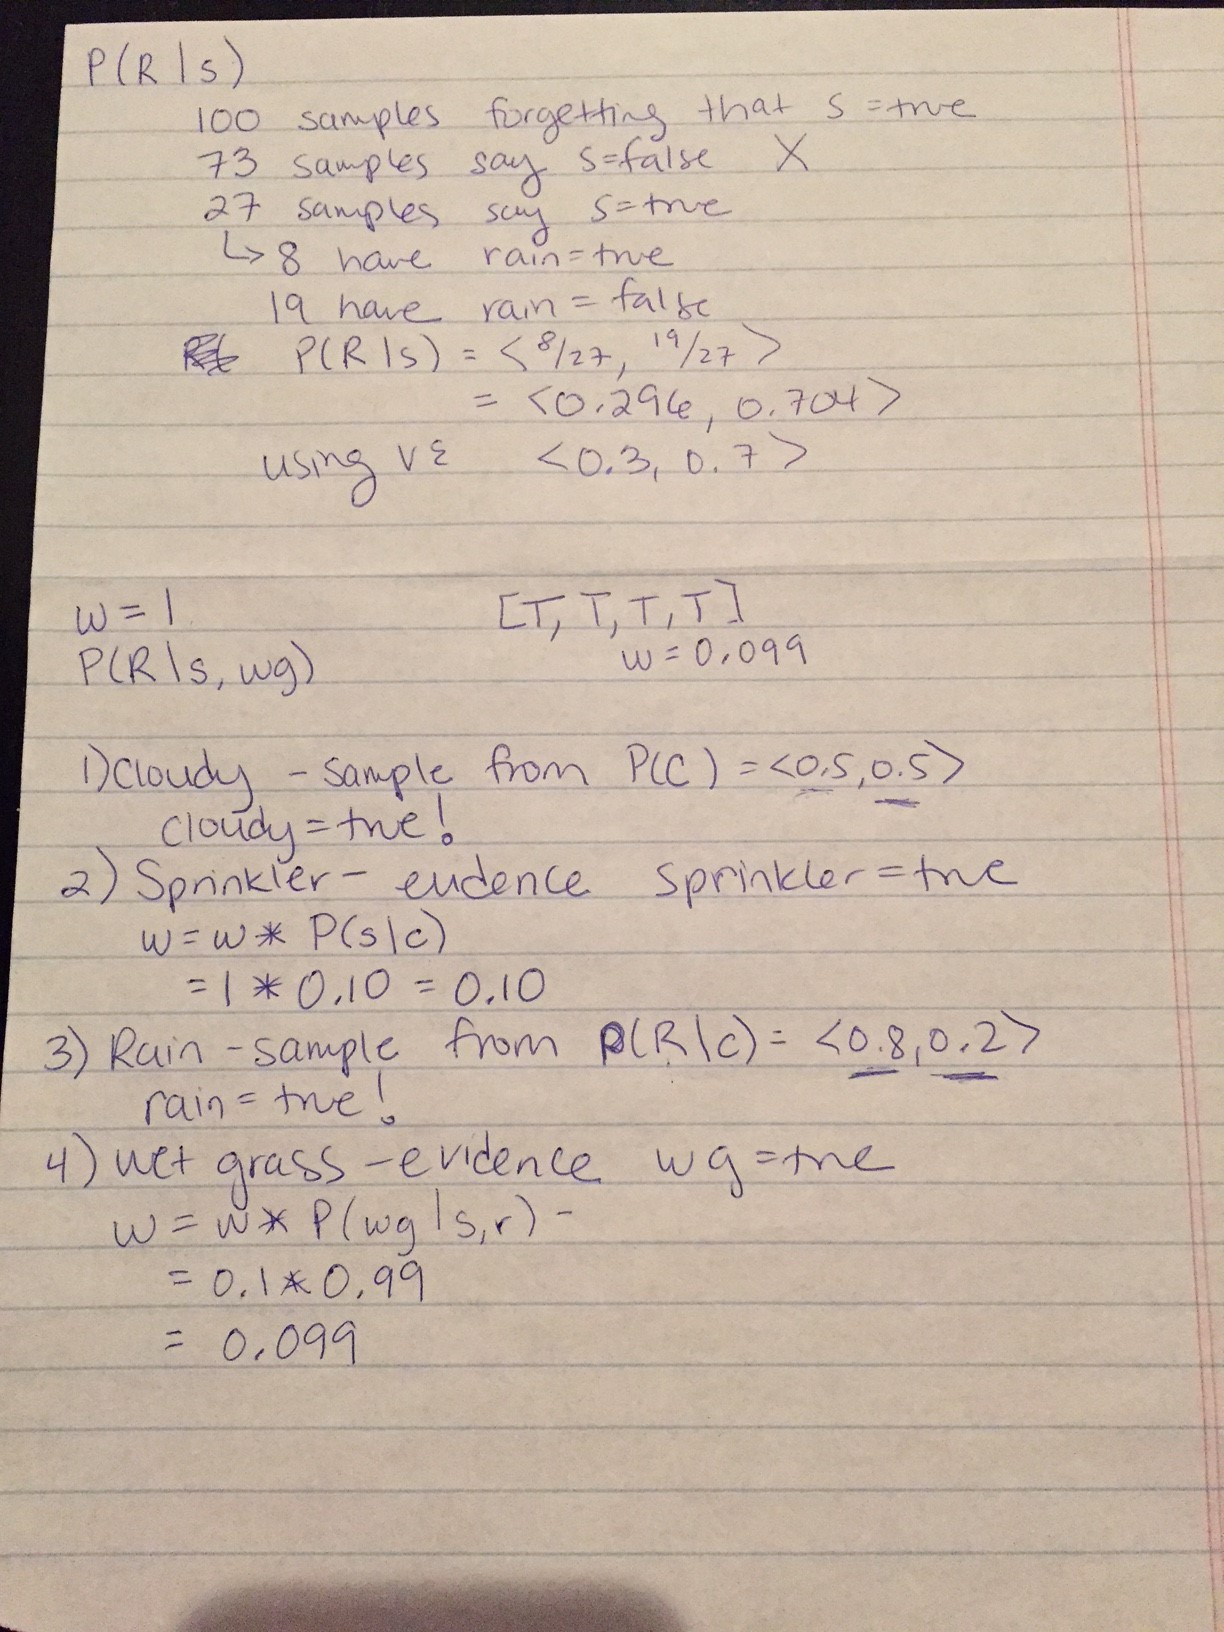 P(R|s)
100 samples forgetting that s=true
73 samples say s=false X
27 samples say s=true
↳ 8 have rain=true
19 have rain=false
P(R|s) = <8/27, 19/27>
= <0.296, 0.704>
using VE <0.3, 0.7>
w=1 [T, T, T, T]
P(R|s, wg) w=0.099
1) Cloudy - sample from P(C) = <0.5, 0.5>
cloudy=true!
2) Sprinkler - evidence sprinkler=true
w=w* P(s|c)
=1*0.10 = 0.10
3) Rain - sample from P(R|c) = <0.8, 0.2>
rain=true!
4) wet grass - evidence wg=true
w=w* P(wg|s,r) -
= 0.1*0.99
= 0.099